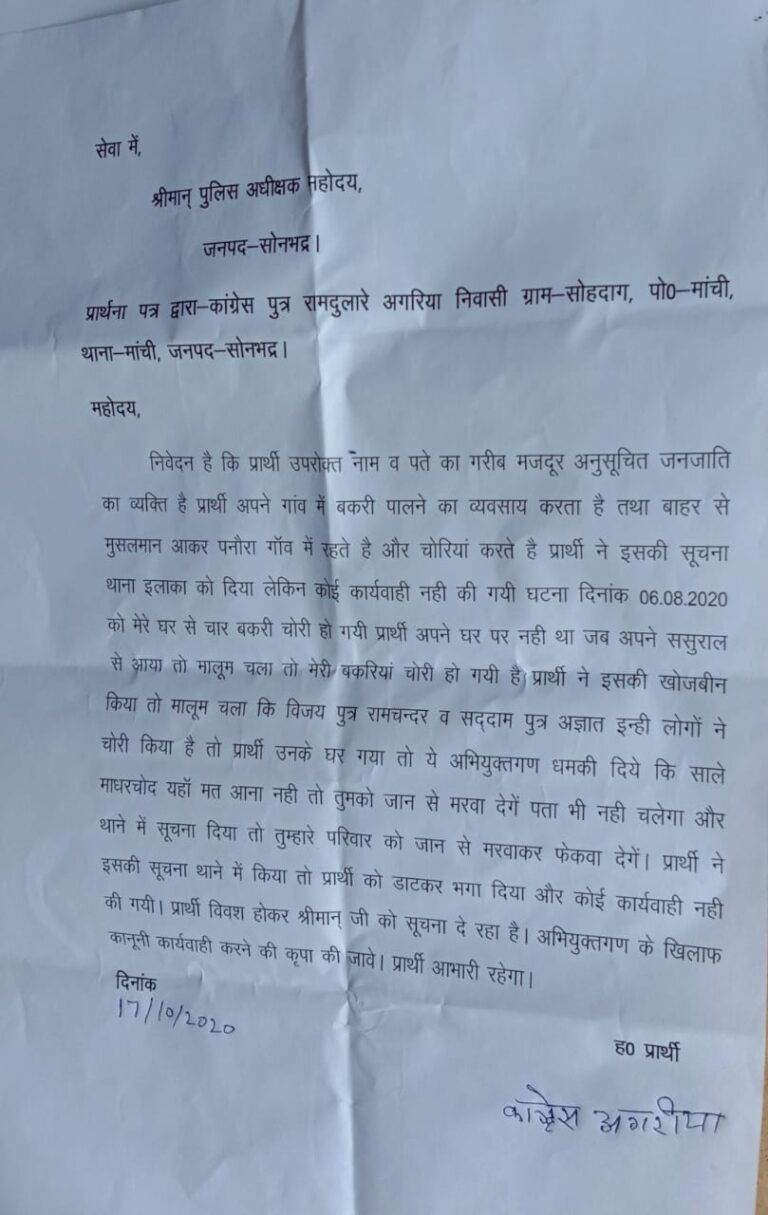 सेवा में,
श्रीमान् पुलिस अधीक्षक महोदय,
जनपद–सोनभद्र।
प्रार्थना पत्र द्वारा–कांग्रेस पुत्र रामदुलारे अगरिया निवासी ग्राम–सोहदाग, पो0–मांची,
थाना–मांची, जनपद–सोनभद्र।
महोदय,
निवेदन है कि प्रार्थी उपरोक्त नाम व पते का गरीब मजदूर अनुसूचित जनजाति
का व्यक्ति है प्रार्थी अपने गांव में बकरी पालने का व्यवसाय करता है तथा बाहर से
मुसलमान आकर पनौरा गॉव में रहते है और चोरियां करते है प्रार्थी ने इसकी सूचना
थाना इलाका को दिया लेकिन कोई कार्यवाही नही की गयी घटना दिनांक 06.08.2020
को मेरे घर से चार बकरी चोरी हो गयी प्रार्थी अपने घर पर नही था जब अपने ससुराल
से आया तो मालूम चला तो मेरी बकरियां चोरी हो गयी है। प्रार्थी ने इसकी खोजबीन
किया तो मालूम चला कि विजय पुत्र रामचन्दर व सद्दाम पुत्र अज्ञात इन्ही लोगों ने
चोरी किया है तो प्रार्थी उनके घर गया तो ये अभियुक्तगण धमकी दिये कि साले
माधरचोद यहॉ मत आना नही तो तुमको जान से मरवा देगें पता भी नही चलेगा और
थाने में सूचना दिया तो तुम्हारे परिवार को जान से मरवाकर फेकवा देगें। प्रार्थी ने
इसकी सूचना थाने में किया तो प्रार्थी को डाटकर भगा दिया और कोई कार्यवाही नही
की गयी। प्रार्थी विवश होकर श्रीमान् जी को सूचना दे रहा है। अभियुक्तगण के खिलाफ
कानूनी कार्यवाही करने की कृपा की जावे। प्रार्थी आभारी रहेगा।
दिनांक
17/10/2020
ह0 प्रार्थी
कांग्रेस अगरीया